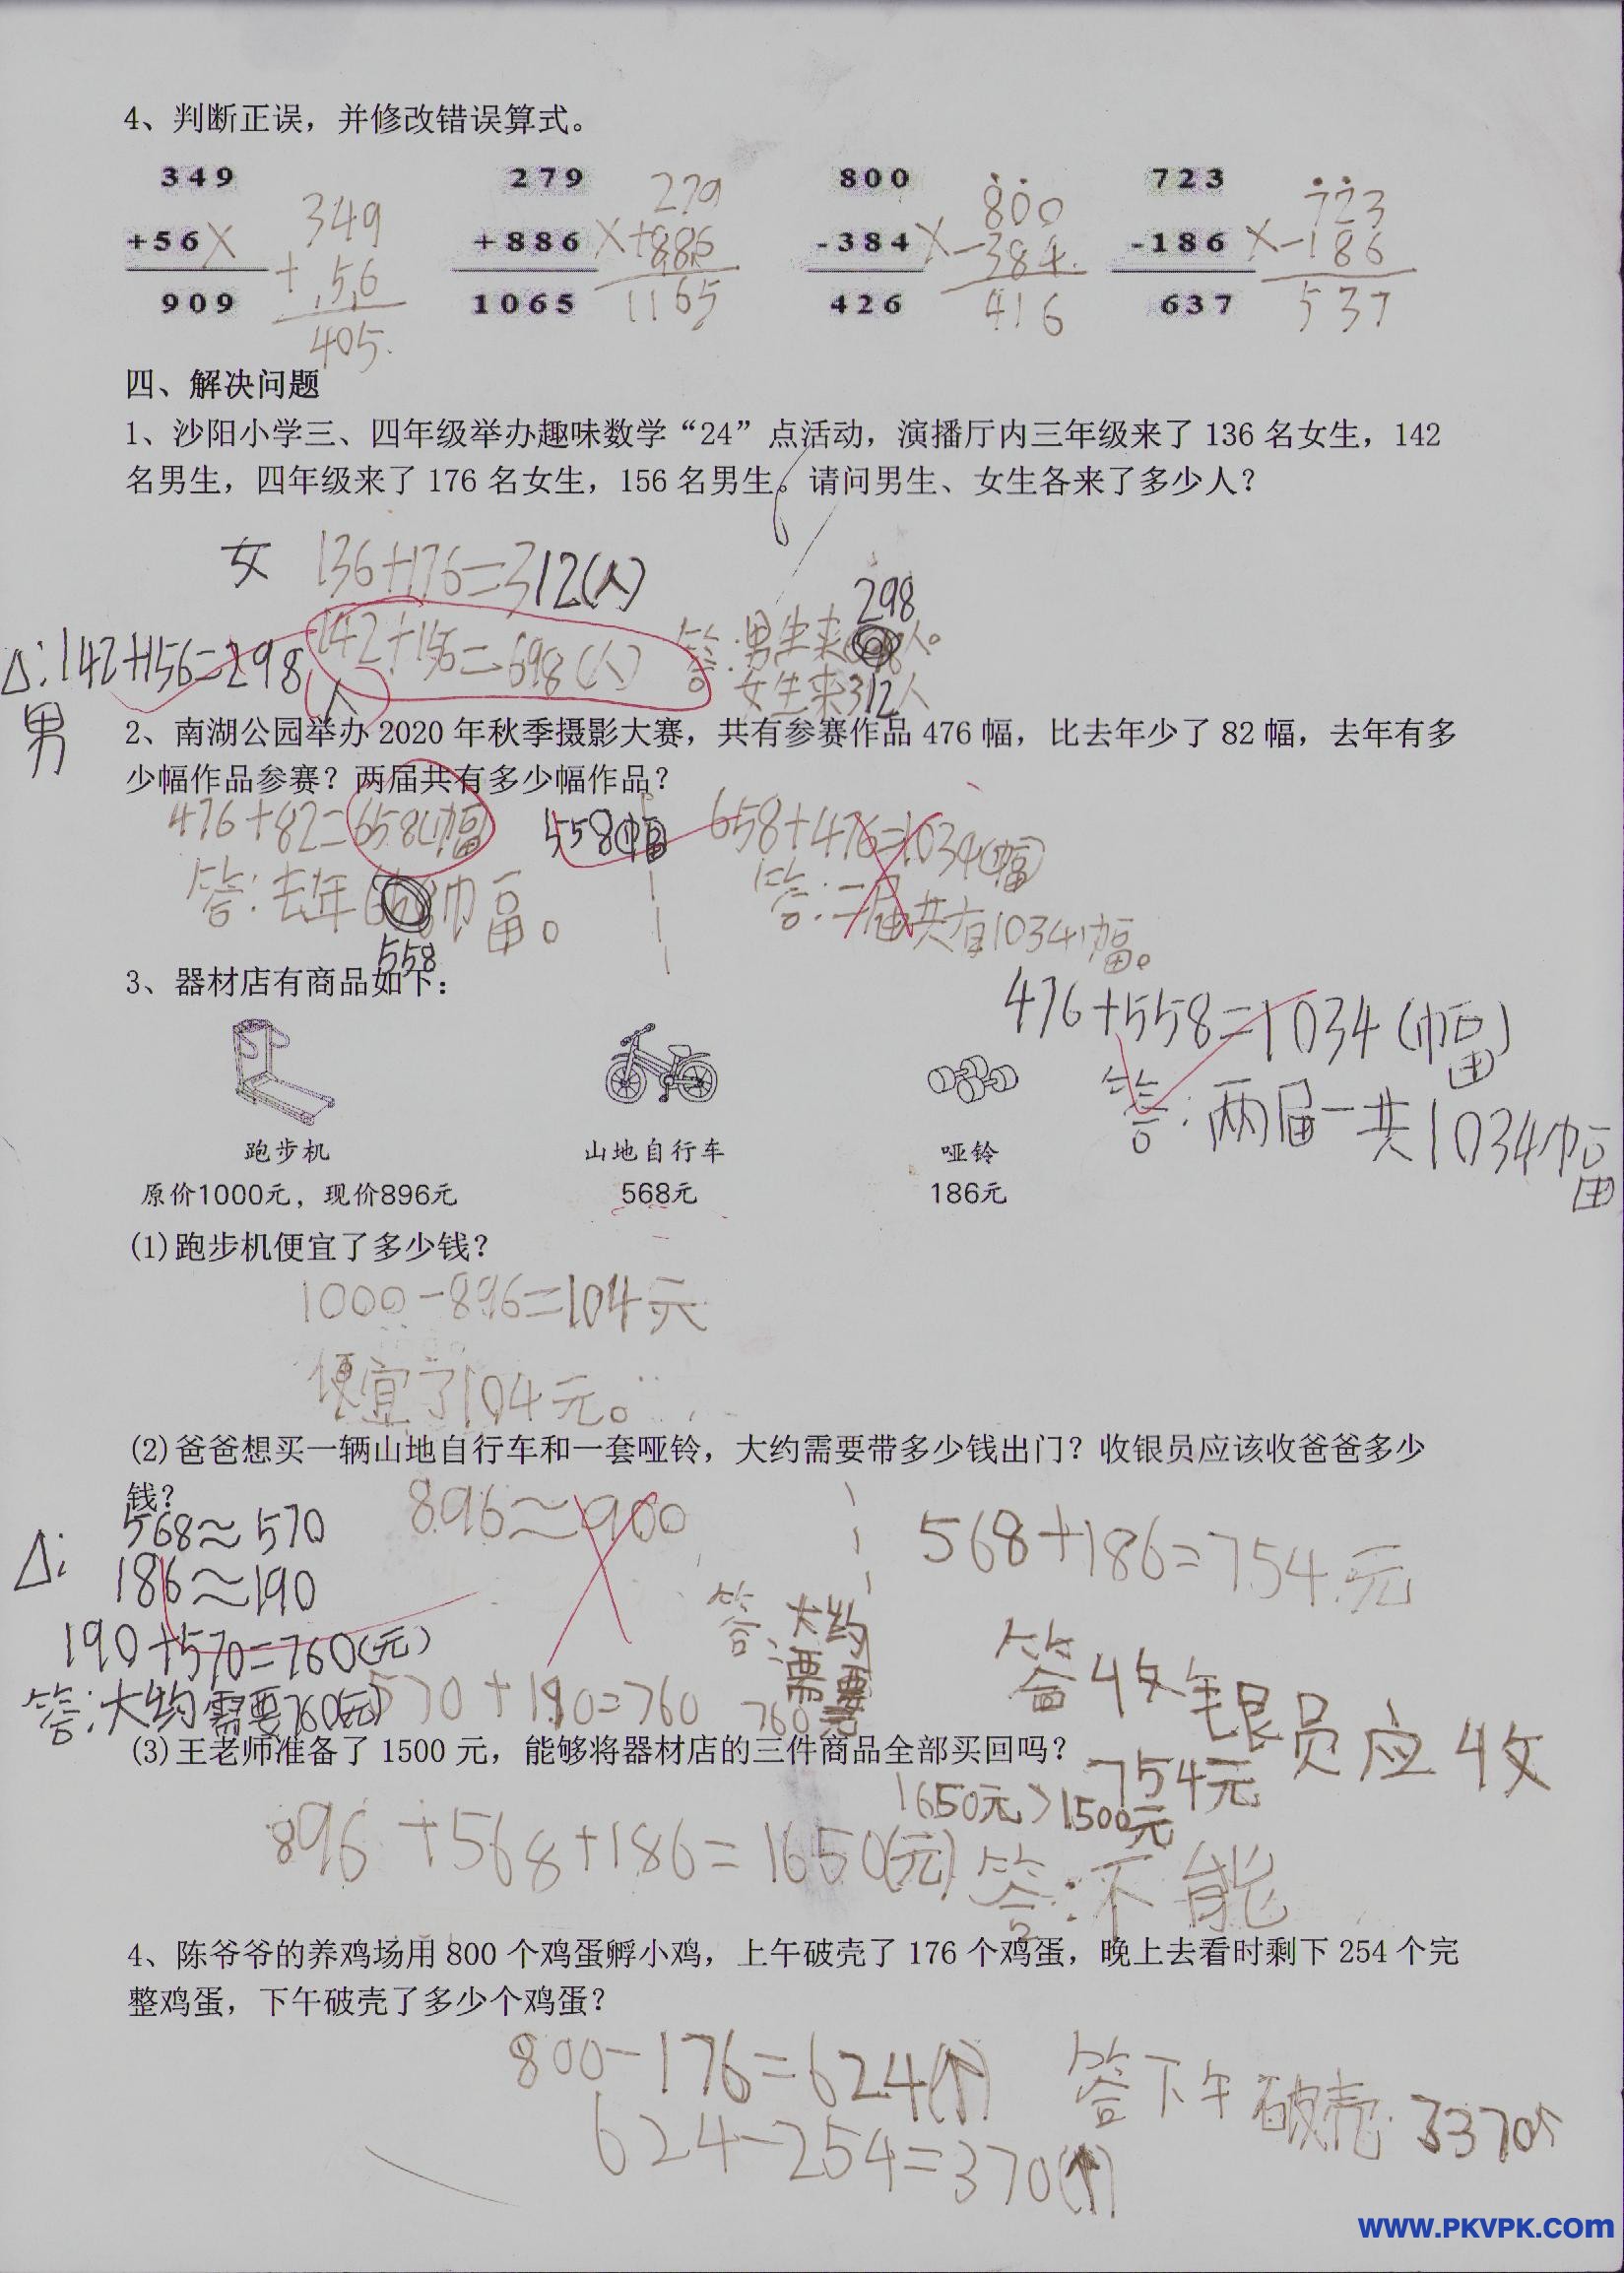 4、判断正误，并修改错误算式。
349 349 279 279 800 800 723 723
+56 × + 56 +886 × +886 -384 × -384 -186 × -186
909 405 1065 1165 426 416 637 537
四、解决问题
1、沙阳小学三、四年级举办趣味数学“24”点活动，演播厅内三年级来了 136 名女生，142
名男生，四年级来了 176 名女生，156 名男生。请问男生、女生各来了多少人？
女 136+176=312(人)
298
△:142+156=298人 142+156=698(人) 答:男生来人。
男 女生来312人
2、南湖公园举办 2020 年秋季摄影大赛，共有参赛作品 476 幅，比去年少了 82 幅，去年有多
少幅作品参赛？两届共有多少幅作品？
476+82=658(幅) 558(幅) 658+476=1034(幅)
答:去年幅。 答:二届共有1034幅。
558
3、器材店有商品如下：
476+558=1034(幅)
答:两届一共1034幅
跑步机 山地自行车 哑铃
原价1000元，现价896元 568元 186元
(1)跑步机便宜了多少钱？
1000-896=104元
便宜了104元。
(2)爸爸想买一辆山地自行车和一套哑铃，大约需要带多少钱出门？收银员应该收爸爸多少
钱？
△: 568≈570 896≈900 568+186=754元
186≈190
190+570=760(元) 答:大约需要
答:大约需要760(元) 570+190=760 760元 答收银员应收
754元
(3)王老师准备了 1500 元，能够将器材店的三件商品全部买回吗？
1650元>1500元
896+568+186=1650(元) 答:不能
4、陈爷爷的养鸡场用 800 个鸡蛋孵小鸡，上午破壳了 176 个鸡蛋，晚上去看时剩下 254 个完
整鸡蛋，下午破壳了多少个鸡蛋？
800-176=624(个) 答下午破壳3370个
624-254=370(个)
www.PKVPK.com